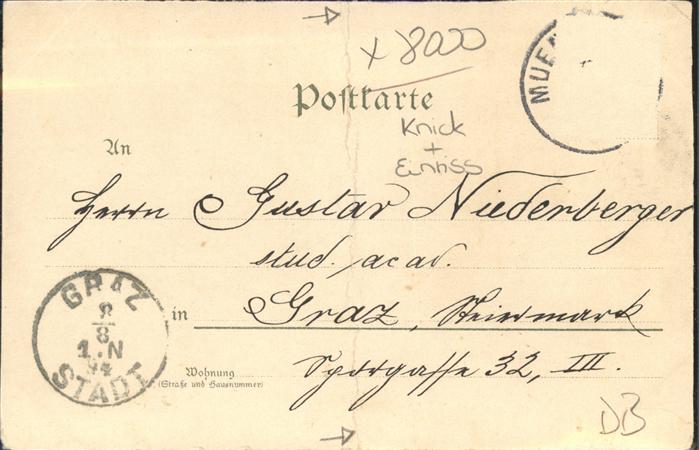 x 8000
MUE
Postkarte
Knick
+
Einriss
An
Herrn Gustav Niederberger
stud. acad.
in Graz, Steiermark
Wohnung
(Straße und Hausnummer)
Sporgasse 32, III.
GRAZ
8
8
1.N
94
STADT
DB